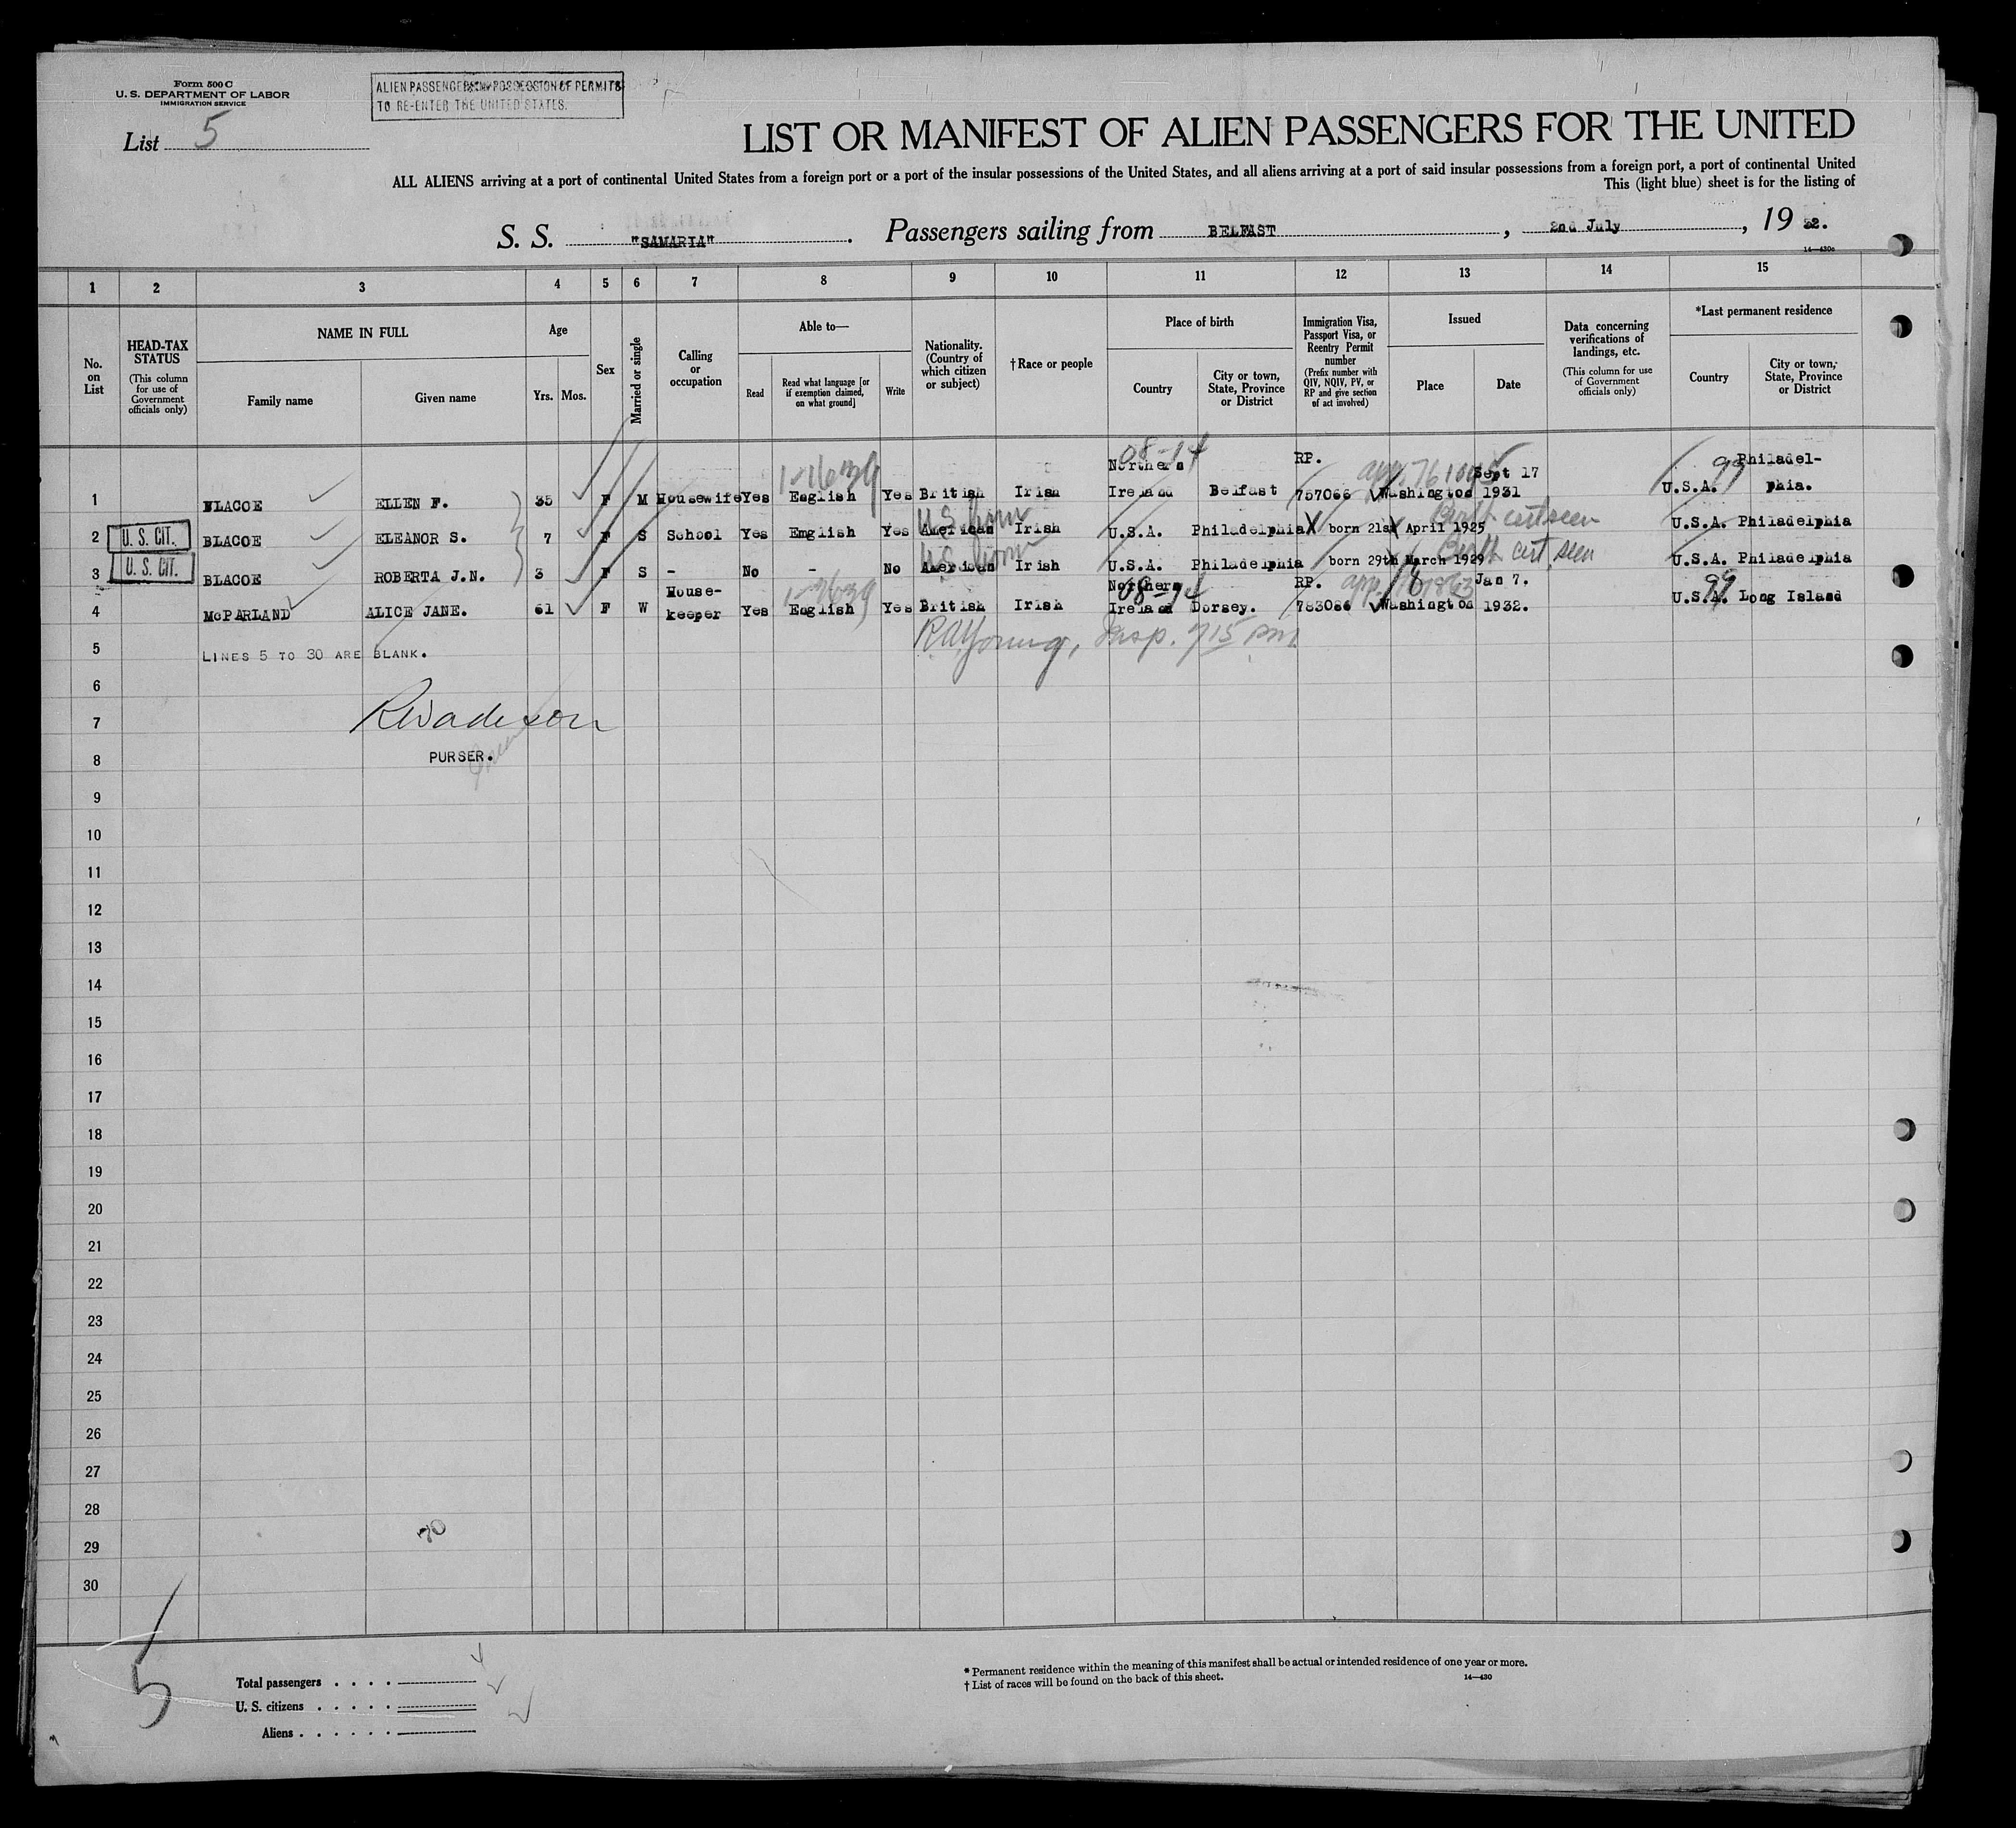 Form 500 C
U. S. DEPARTMENT OF LABOR
IMMIGRATION SERVICE
ALIEN PASSENGERS IN POSSESSION OF PERMITS
TO RE-ENTER THE UNITED STATES.
List 5
LIST OR MANIFEST OF ALIEN PASSENGERS FOR THE UNITED
ALL ALIENS arriving at a port of continental United States from a foreign port or a port of the insular possessions of the United States, and all aliens arriving at a port of said insular possessions from a foreign port, a port of continental United
This (light blue) sheet is for the listing of
S. S. "SAMARIA". Passengers sailing from BELFAST, 2nd July, 19 32.
14—430c
1 2 3 4 5 6 7 8 9 10 11 12 13 14 15
No. on List
HEAD-TAX STATUS (This column for use of Government officials only)
NAME IN FULL
Family name
Given name
Age
Yrs. Mos.
Sex
Married or single
Calling or occupation
Able to—
Read
Read what language [or if exemption claimed, on what ground]
Write
Nationality. (Country of which citizen or subject)
† Race or people
Place of birth
Country
City or town, State, Province or District
Immigration Visa, Passport Visa, or Reentry Permit number (Prefix number with QIV, NQIV, PV, or RP and give section of act involved)
Issued
Place
Date
Data concerning verifications of landings, etc. (This column for use of Government officials only)
*Last permanent residence
Country
City or town, State, Province or District
08-14
Northern RP. Sept 17 99 Philadel-
1 BLACOE ELLEN F. 35 F M Housewife Yes English Yes British Irish Ireland Belfast 757066 Washington 1931 U.S.A. phia.
U.S. born Birth cert seen
2 U. S. CIT. BLACOE ELEANOR S. 7 F S School Yes English Yes American Irish U.S.A. Philadelphia born 21st April 1925 U.S.A. Philadelphia
U.S. born Birth cert seen
3 U. S. CIT. BLACOE ROBERTA J.N. 3 F S - No - No American Irish U.S.A. Philadelphia born 29th March 1929 U.S.A. Philadelphia
House- Northern RP. Jan 7. 99
4 McPARLAND ALICE JANE. 61 F W keeper Yes English Yes British Irish Ireland Dorsey. 783066 Washington 1932. U.S.A. Long Island
5 LINES 5 TO 30 ARE BLANK. Young, Insp. 715 pm
6
7
PURSER.
8
9
10
11
12
13
14
15
16
17
18
19
20
21
22
23
24
25
26
27
28
29
30
5
Total passengers
U. S. citizens
Aliens
* Permanent residence within the meaning of this manifest shall be actual or intended residence of one year or more.
† List of races will be found on the back of this sheet.
14—430